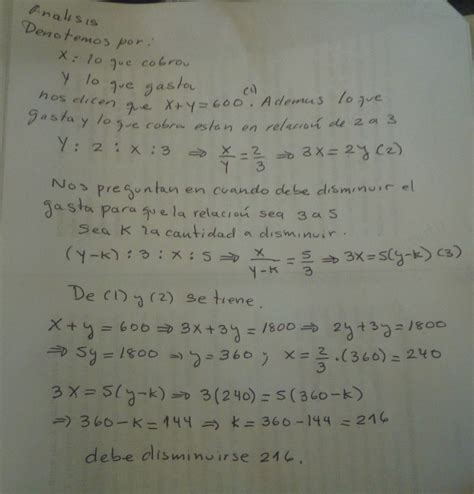 Analisis
Denotemos por:
X: lo que cobrou
Y lo que gasta
nos dicen que x+y=600 (1). Ademas lo que
gasta y lo que cobra estan en relación de 2 a 3
Y : 2 : x : 3 ⇒ x/y = 2/3 ⇒ 3x = 2y (2)
Nos preguntan en cuando debe disminuir el
gasta para que la relación sea 3 a 5
Sea K la cantidad a disminuir.
(y-k) : 3 : x : 5 ⇒ x/(y-k) = 5/3 ⇒ 3x = 5(y-k) (3)
De (1) y (2) se tiene.
x+y = 600 ⇒ 3x+3y = 1800 ⇒ 2y+3y = 1800
⇒ 5y = 1800 ⇒ y = 360 ; x = 2/3 . (360) = 240
3x = 5(y-k) ⇒ 3(240) = 5(360-k)
⇒ 360-k = 144 ⇒ k = 360-144 = 216
debe disminuirse 216.